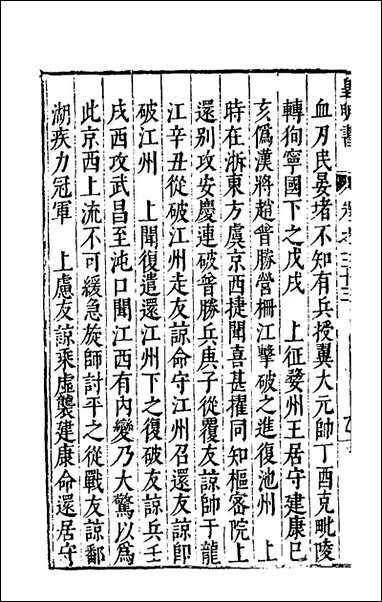 皇明書
卷之三十三
血刃民晏堵不知有兵授翼大元帥丁酉克毗陵
轉狥寧國下之戊戌　上征婺州王居守建康巳
亥偽漢將趙普勝營栅江擊破之進復池州　上
時在浙東方虞京西捷聞喜甚擢同知樞密院上
還别攻安慶連破普勝兵庚子從覆友諒師于龍
江辛丑從破江州走友諒命守江州召還友諒即
破江州　上聞復遣還江州下之復破友諒兵壬
戌西攻武昌至沌口聞江西有内變乃大驚以爲
此京西上流不可緩急旋師討平之從戰友諒鄱
湖疾力冠軍　上慮友諒乘虛襲建康命還居守